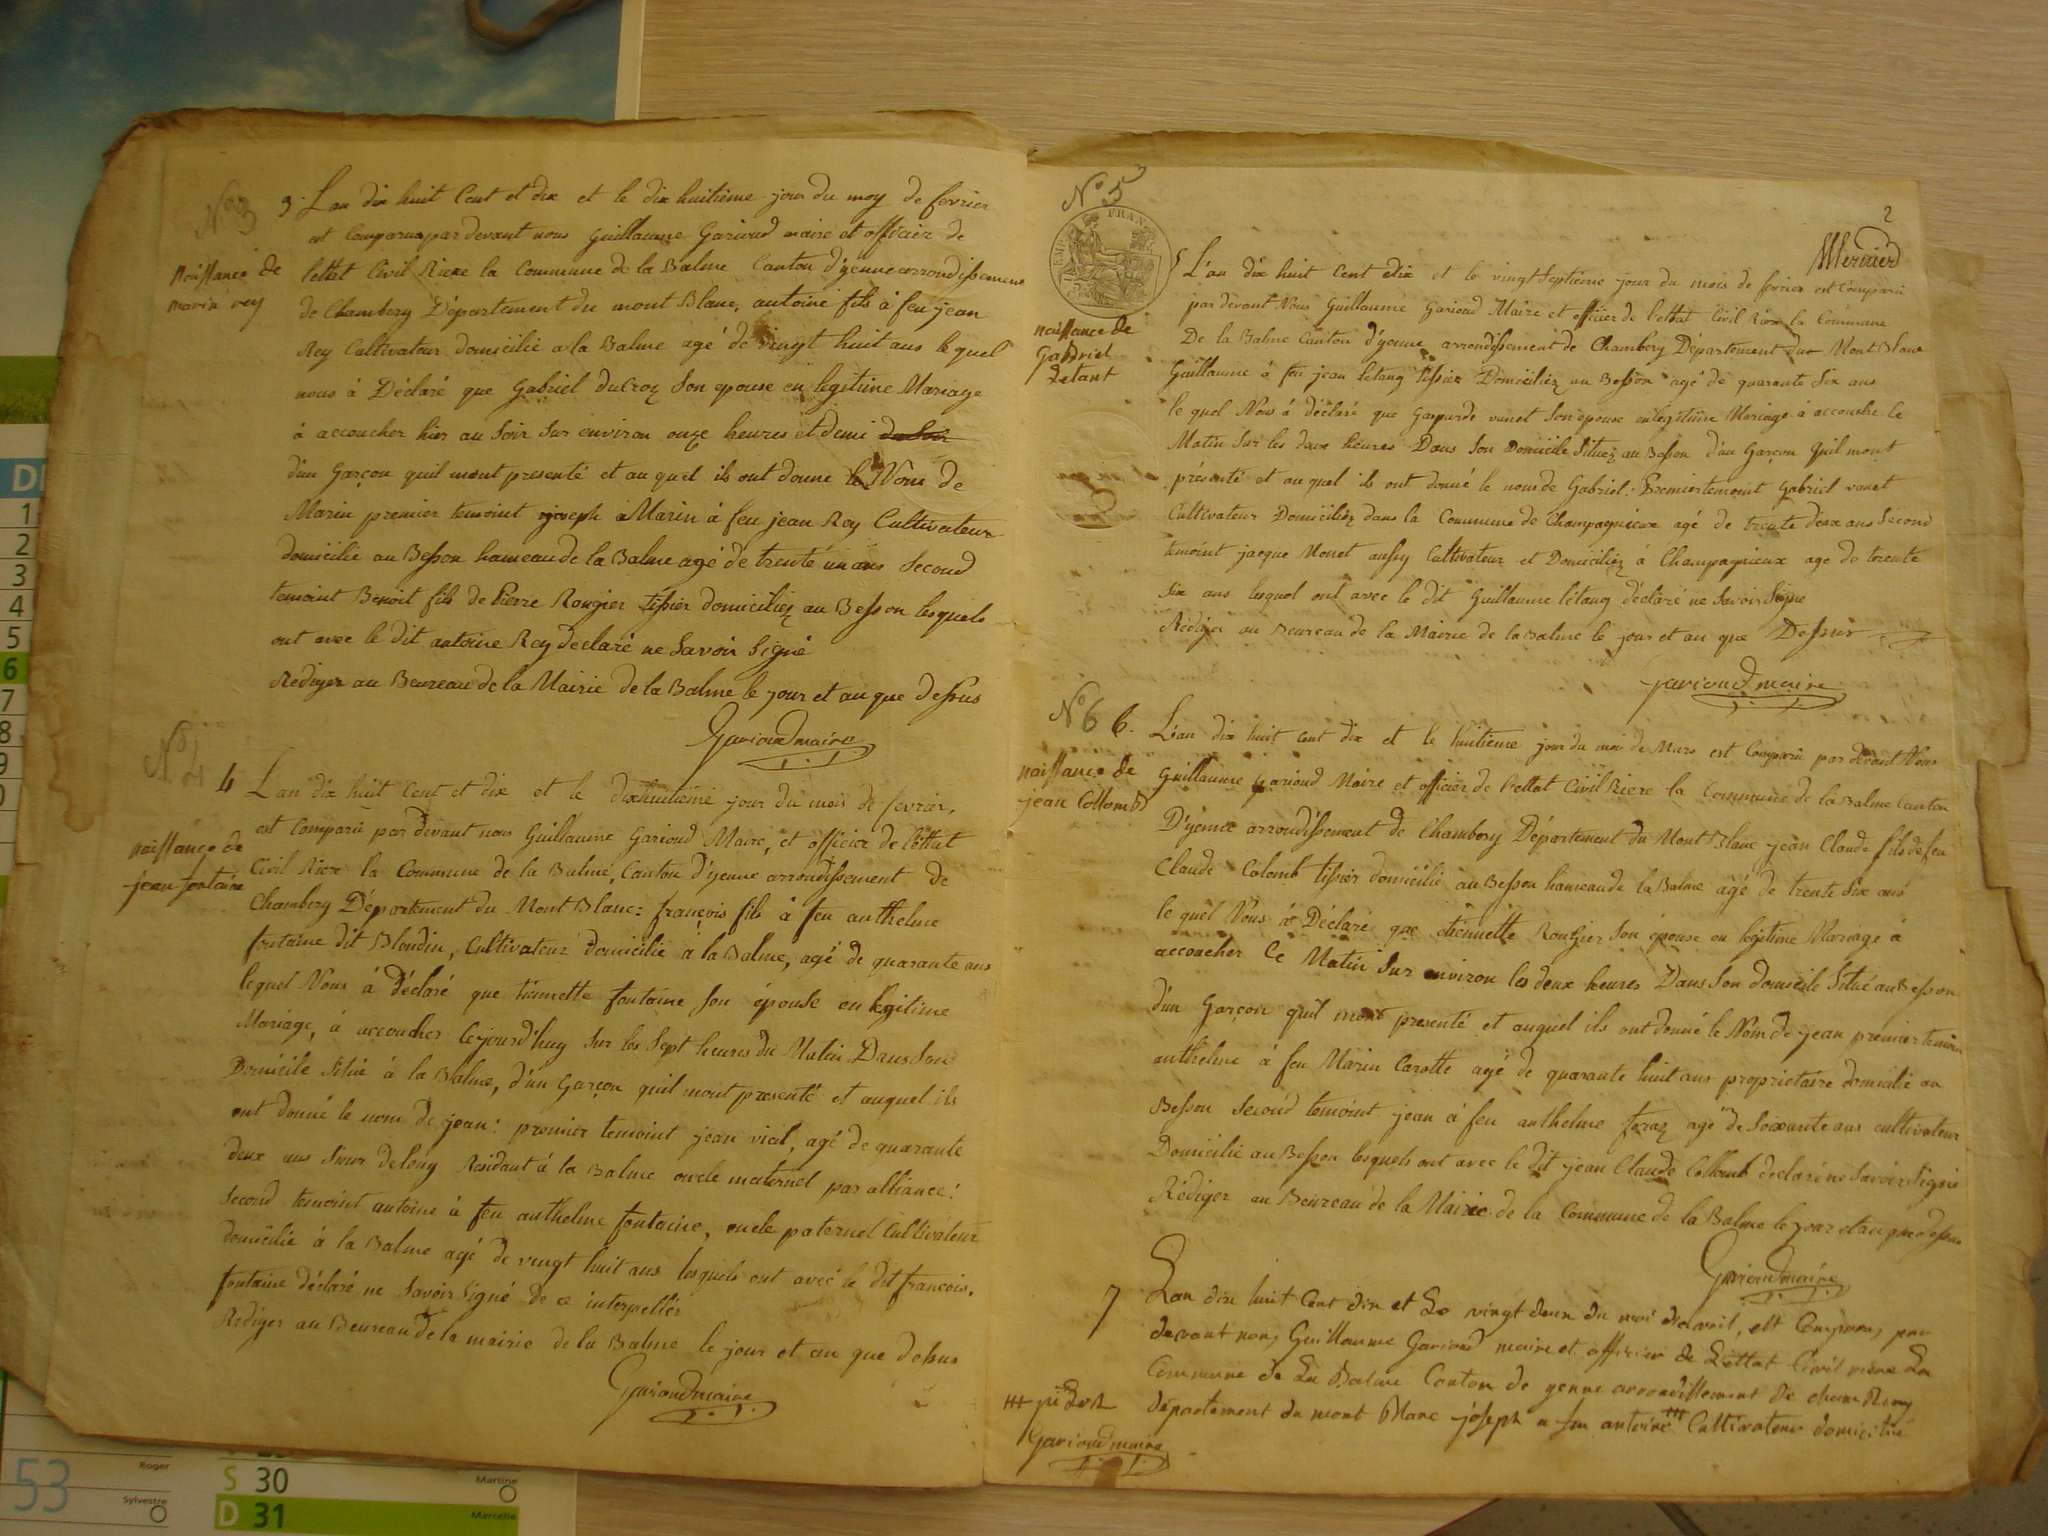 No 3
naissance de
marin rey
3. Lan dix huit Cent et dix et le dix huitieme jour du moy de fevrier
est Comparu par devant nous Guillaume Garioud maire et officier de
lettet Civil Riere la Commune de la Balme Canton d'yenne arrondissement
de Chambery Département du mont Blanc, antoine fils à feu jean
Rey Cultivateur domicilié a la Balme agé de vingt huit ans le quel
nous à Déclaré que Gabriel duCroz Son epouse en legitime Mariage
à accoucher hier au Soir Sur environ onze heures et demi du Soir
d'un Garçon quil mont presenté et au quel ils ont donne le Nom de
Marin premier temoint joseph à Marin à feu jean Rey Cultivateur
domicilié au Besson hameau de la Balme agé de trente un ans Second
temoint Benoit fils de Pierre Rougier tissier domiciliez au Besson lesquels
ont avec le dit antoine Rey declaré ne Savoir Signé
Rediger au Beureau de la Mairie de la Balme le jour et an que dessus
Garioud maire
No 4
naissance de
jean fontaine
4 Lan dix huit Cent et dix et le dixhuitieme jour du mois de fevrier,
est Comparu par devant nous Guillaume Garioud Maire, et officier de l'ettat
Civil Riere la Commune de la Balme, Canton d'yenne arrondissement de
Chambery Département du Mont Blanc: françois fils à feu anthelme
fontaine dit Blondin, Cultivateur domicilié a la Balme, agé de quarante ans
lequel Nous à déclaré que tiennette fontaine Son épouse en legitime
Mariage, à accoucher Cejourd'huy Sur les Sept heures du Matin Dans Son
Domicile Situé à la Balme, d'un Garçon quil mont presenté et auquel ils
ont donné le nom de jean: premier temoint jean vial, agé de quarante
deux ans delong Residant à la Balme oncle maternel par alliance:
Second temoint antoine à feu anthelme fontaine, oncle paternel Cultivateur
domicilié à la Balme agé de vingt huit ans lesquels ont avec le dit françois
fontaine déclaré ne Savoir Signé de ce interpellés
Rediger au Beureau de la mairie de la Balme le jour et an que dessus
Garioud maire
No 5
2
naissance de
Gabriel
letant
5 L'an dix huit Cent dix et le vingt Septieme jour du mois de fevrier est Comparu
par devant Nous Guillaume Garioud Maire et officier de l'ettat Civil Riere la Commune
De la Balme Canton d'yenne arrondissement de Chambery Département du Mont Blanc
Guillaume à feu jean letang tissier Domiciliez au Besson agé de quarante Six ans
le quel Nous à déclaré que Gasparde vanet Son epouse en legitime Mariage à accouché le
Matin Sur les deux heures Dans Son Domicile Situez au Besson d'un Garçon Quil mont
présenté et au quel ils ont donné le nom de Gabriel: Premier temoint Gabriel vanet
Cultivateur Domiciliéz dans la Commune de Champagnieux agé de trente deux ans Second
temoint jacque Monet aussy Cultivateur et Domiciliez à Champagnieux age de trente
Six ans lesquel ont avec le dit Guillaume létang déclaré ne Savoir Signe
Rédiger au Beureau de la Mairie de la Balme le jour et an que Dessus
Garioud maire
No 6
naissance de
jean Collomb
6. L'an dix huit cent dix et le huitieme jour du moi de Mars est Comparu par devant Nous
Guillaume Garioud Maire et officier de l'ettat Civil Riere la Commune de la Balme Canton
D'yenne arrondissement de Chambery Département du Mont Blanc jean Claude fils de feu
Claude Colomb tissier domicilié au Besson hameau de la Balme agé de trente Six ans
le quel Nous à Déclaré que etiennette Rougier Son épouse en legitime Mariage à
accoucher Ce Matin Sur environ les deux heures Dans Son domicile Situé au Besson
d'un Garçon quil mont presenté et auquel ils ont donné le Nom de jean premier temoin
anthelme à feu Marin Carotte agé de quarante huit ans proprietaire domicilié au
Besson Second temoint jean à feu anthelme foraz agé de Soixante ans cultivateur
Domicilié au Besson lesquels ont avec le dit jean Claude Collomb declaré ne Savoir Signé
Rédiger au Beureau de la Mairie de la Commune de la Balme le jour et an que dessus
Garioud maire
7 Lan dix huit Cent dix et Le vingt deux du moi d'avril, est Comparu, par
devant nous Guillaume Garioud maire et officier de Lettat Civil riere La
Commune de La Balme Canton de yenne arrondissement De chambery
département du mont Blanc joseph a feu antoine Cultivateur domicilié
Garioud maire
Roger
53
Sylvestre
S 30
Martine
D 31
Marcelle
D
1
2
3
4
5
6
7
8
9